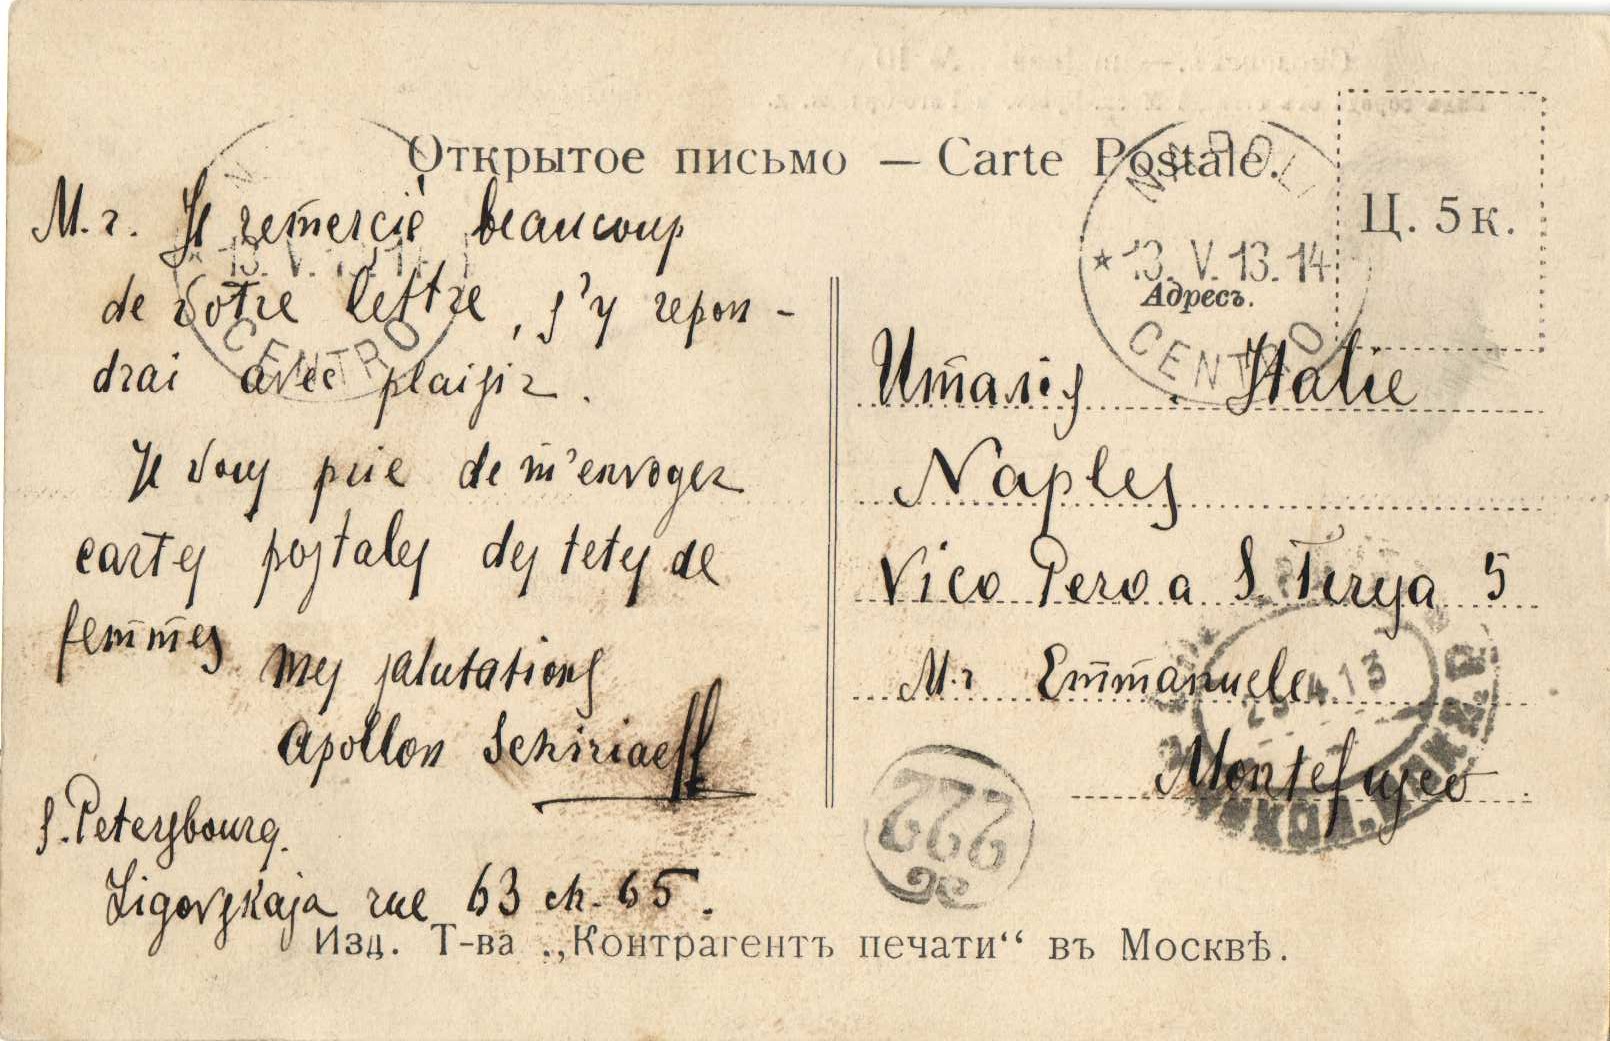 Открытое письмо — Carte Postale.
Ц. 5 к.
NAPOLI
* 13. V. 13. 14
CENTRO
M.r. Je remercie beaucoup
de votre lettre, j'y repon-
drai avec plaisir.
Je vous prie de m'envoyer
cartes postales des tetes de
femmes
Mes salutations
Apollon Schiriaeff
S. Petersbourg.
Ligovskaja rue 63 ch. 65.
Адресъ.
Италія. Italie
Naples
Vico Pero a S. Teresa 5
M.r Emmanuele
Montefusco
4 13
222
Изд. Т-ва „Контрагентъ печати“ въ Москвѣ.